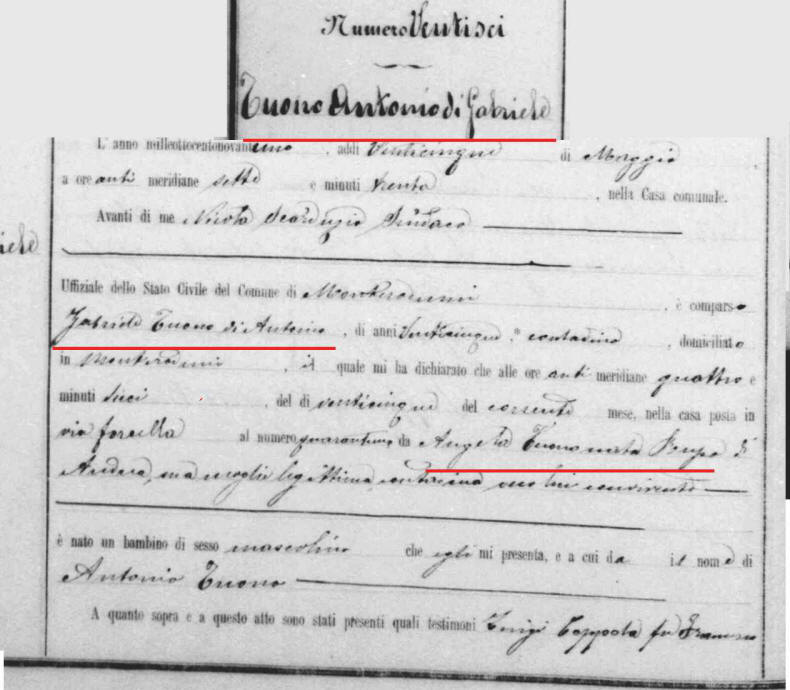 Numero Ventisei
Tuono Antonio di Gabriele
L'anno milleottocentonovantuno, addì venticinque di Maggio
a ore anti meridiane sette e minuti trenta, nella Casa comunale.
Avanti di me Nicola Scarduzio Sindaco
iele
Uffiziale dello Stato Civile del Comune di Monteroduni, è comparso
Gabriele Tuono di Antonio, di anni venticinque, contadino, domiciliato
in Monteroduni, il quale mi ha dichiarato che alle ore anti meridiane quattro e
minuti dieci, del dì venticinque del corrente mese, nella casa posta in
via forcella al numero quarantuno da Angela Tuono nata di
Andrea, sua moglie legittima, contadina, seco lui convivente
è nato un bambino di sesso mascolino che egli mi presenta, e a cui da il nome di
Antonio Tuono
A quanto sopra e a questo atto sono stati presenti quali testimoni Luigi Coppola fu Francesco